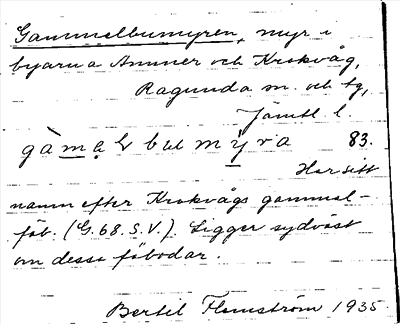 Gammelbumyren, myr i
byarna Ammer och Krokvåg,
Ragunda sn. och tg,
Jämtl. l.
gàmaḷbumỳra 83.
Har sitt
namn efter Krokvågs gammel-
fäb. (G.68.S.V.). Ligger sydväst
om dessa fäbodar.
Bertil Flemström 1935